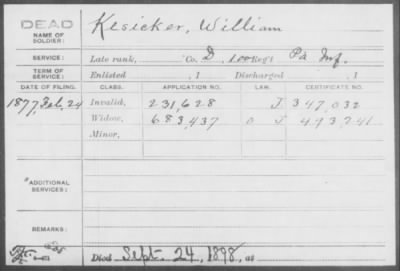 DEAD
NAME OF SOLDIER:
Kesicker, William
SERVICE: Late rank, Co. D, 100 Reg't Pa Inf.
TERM OF SERVICE: Enlisted , 1 Discharged , 1
DATE OF FILING. CLASS. APPLICATION NO. LAW. CERTIFICATE NO.
1877, Feb. 24 Invalid, 231,628 J 347,032
Widow, 683,437 J 493741
Minor,
*ADDITIONAL SERVICES:
REMARKS:
Died Sept. 24, 1898, at